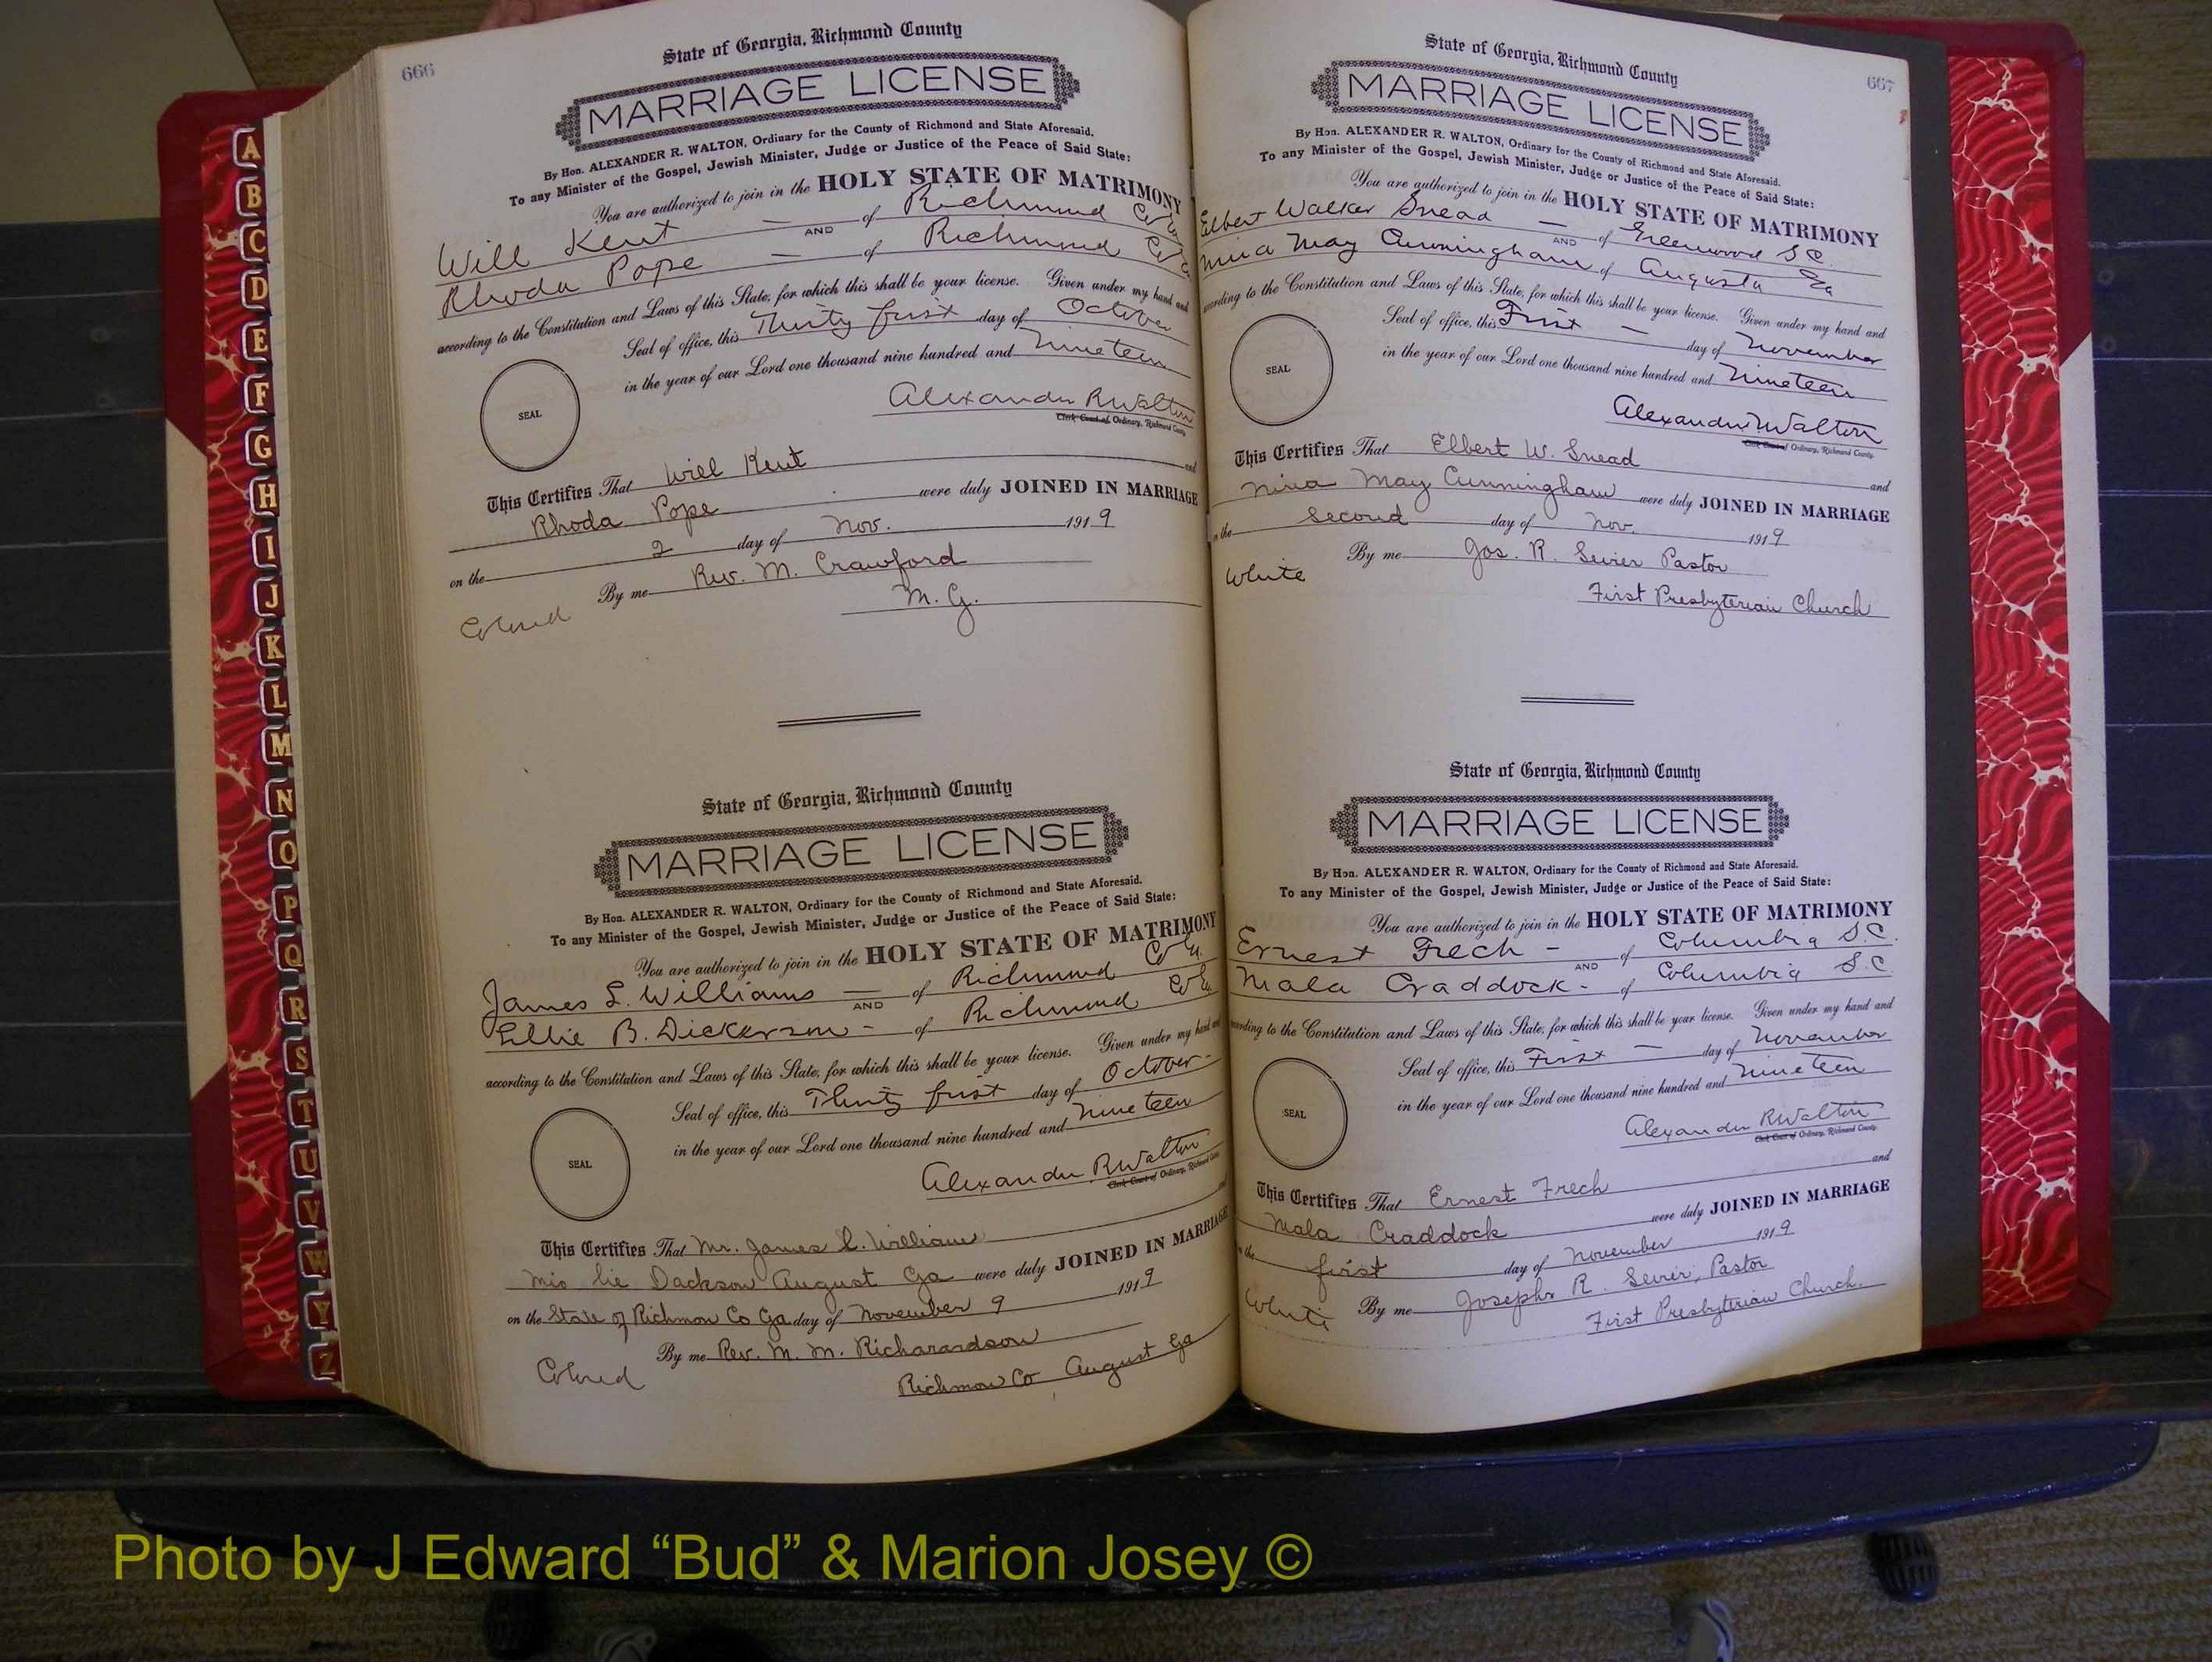 666
State of Georgia, Richmond County
MARRIAGE LICENSE
By Hon. ALEXANDER R. WALTON, Ordinary for the County of Richmond and State Aforesaid.
To any Minister of the Gospel, Jewish Minister, Judge or Justice of the Peace of Said State:
You are authorized to join in the HOLY STATE OF MATRIMONY
Will Kent — of Richmond Co Ga
AND
Rhoda Pope — of Richmond Co
according to the Constitution and Laws of this State, for which this shall be your license. Given under my hand and
Seal of office, this Thirty first day of October
in the year of our Lord one thousand nine hundred and nineteen
SEAL
Alexander R Walton
Clerk Court of Ordinary, Richmond County.
This Certifies That Will Kent and
Rhoda Pope were duly JOINED IN MARRIAGE
on the 2 day of Nov. 1919
By me Rev. M. Crawford
M. G.
Colored
State of Georgia, Richmond County
MARRIAGE LICENSE
By Hon. ALEXANDER R. WALTON, Ordinary for the County of Richmond and State Aforesaid.
To any Minister of the Gospel, Jewish Minister, Judge or Justice of the Peace of Said State:
You are authorized to join in the HOLY STATE OF MATRIMONY
James L. Williams — of Richmond Co Ga.
AND
Ellie B. Dickerson - of Richmond Co Ga
according to the Constitution and Laws of this State, for which this shall be your license. Given under my hand and
Seal of office, this Thirty first day of October -
in the year of our Lord one thousand nine hundred and nineteen
SEAL
Alexander R Walton
Clerk Court of Ordinary, Richmond County
This Certifies That Mr. James L. William and
mis lie Dackson August Ga were duly JOINED IN MARRIAGE
on the State of Richmon Co Ga day of November 9 1919
By me Rev. M. M. Richarardson
Richmon Co August Ga
Colored
667
State of Georgia, Richmond County
MARRIAGE LICENSE
By Hon. ALEXANDER R. WALTON, Ordinary for the County of Richmond and State Aforesaid.
To any Minister of the Gospel, Jewish Minister, Judge or Justice of the Peace of Said State:
You are authorized to join in the HOLY STATE OF MATRIMONY
Elbert Walker Snead — of Greenwood S C.
AND
Nina May Cunningham of Augusta Ga
according to the Constitution and Laws of this State, for which this shall be your license. Given under my hand and
Seal of office, this First — day of November
in the year of our Lord one thousand nine hundred and nineteen
SEAL
Alexander R Walton
Clerk Court of Ordinary, Richmond County.
This Certifies That Elbert W. Snead and
Nina May Cunningham were duly JOINED IN MARRIAGE
on the second day of Nov. 1919
By me Jos. R. Sevier Pastor
White
First Presbyterian Church
State of Georgia, Richmond County
MARRIAGE LICENSE
By Hon. ALEXANDER R. WALTON, Ordinary for the County of Richmond and State Aforesaid.
To any Minister of the Gospel, Jewish Minister, Judge or Justice of the Peace of Said State:
You are authorized to join in the HOLY STATE OF MATRIMONY
Ernest Frech - of Columbia S.C.
AND
Mala Craddock - of Columbia S.C
according to the Constitution and Laws of this State, for which this shall be your license. Given under my hand and
Seal of office, this First — day of November
in the year of our Lord one thousand nine hundred and nineteen
SEAL
Alexander R Walton
Clerk Court of Ordinary, Richmond County.
This Certifies That Ernest Frech and
Mala Craddock were duly JOINED IN MARRIAGE
on the first day of November 1919
White By me Joseph R. Sevier, Pastor
First Presbyterian Church.
A
B
C
D
E
F
G
H
I
J
K
L
M
N
O
P
Q
R
S
T
U
V
W
Y
Z
Photo by J Edward “Bud” & Marion Josey ©